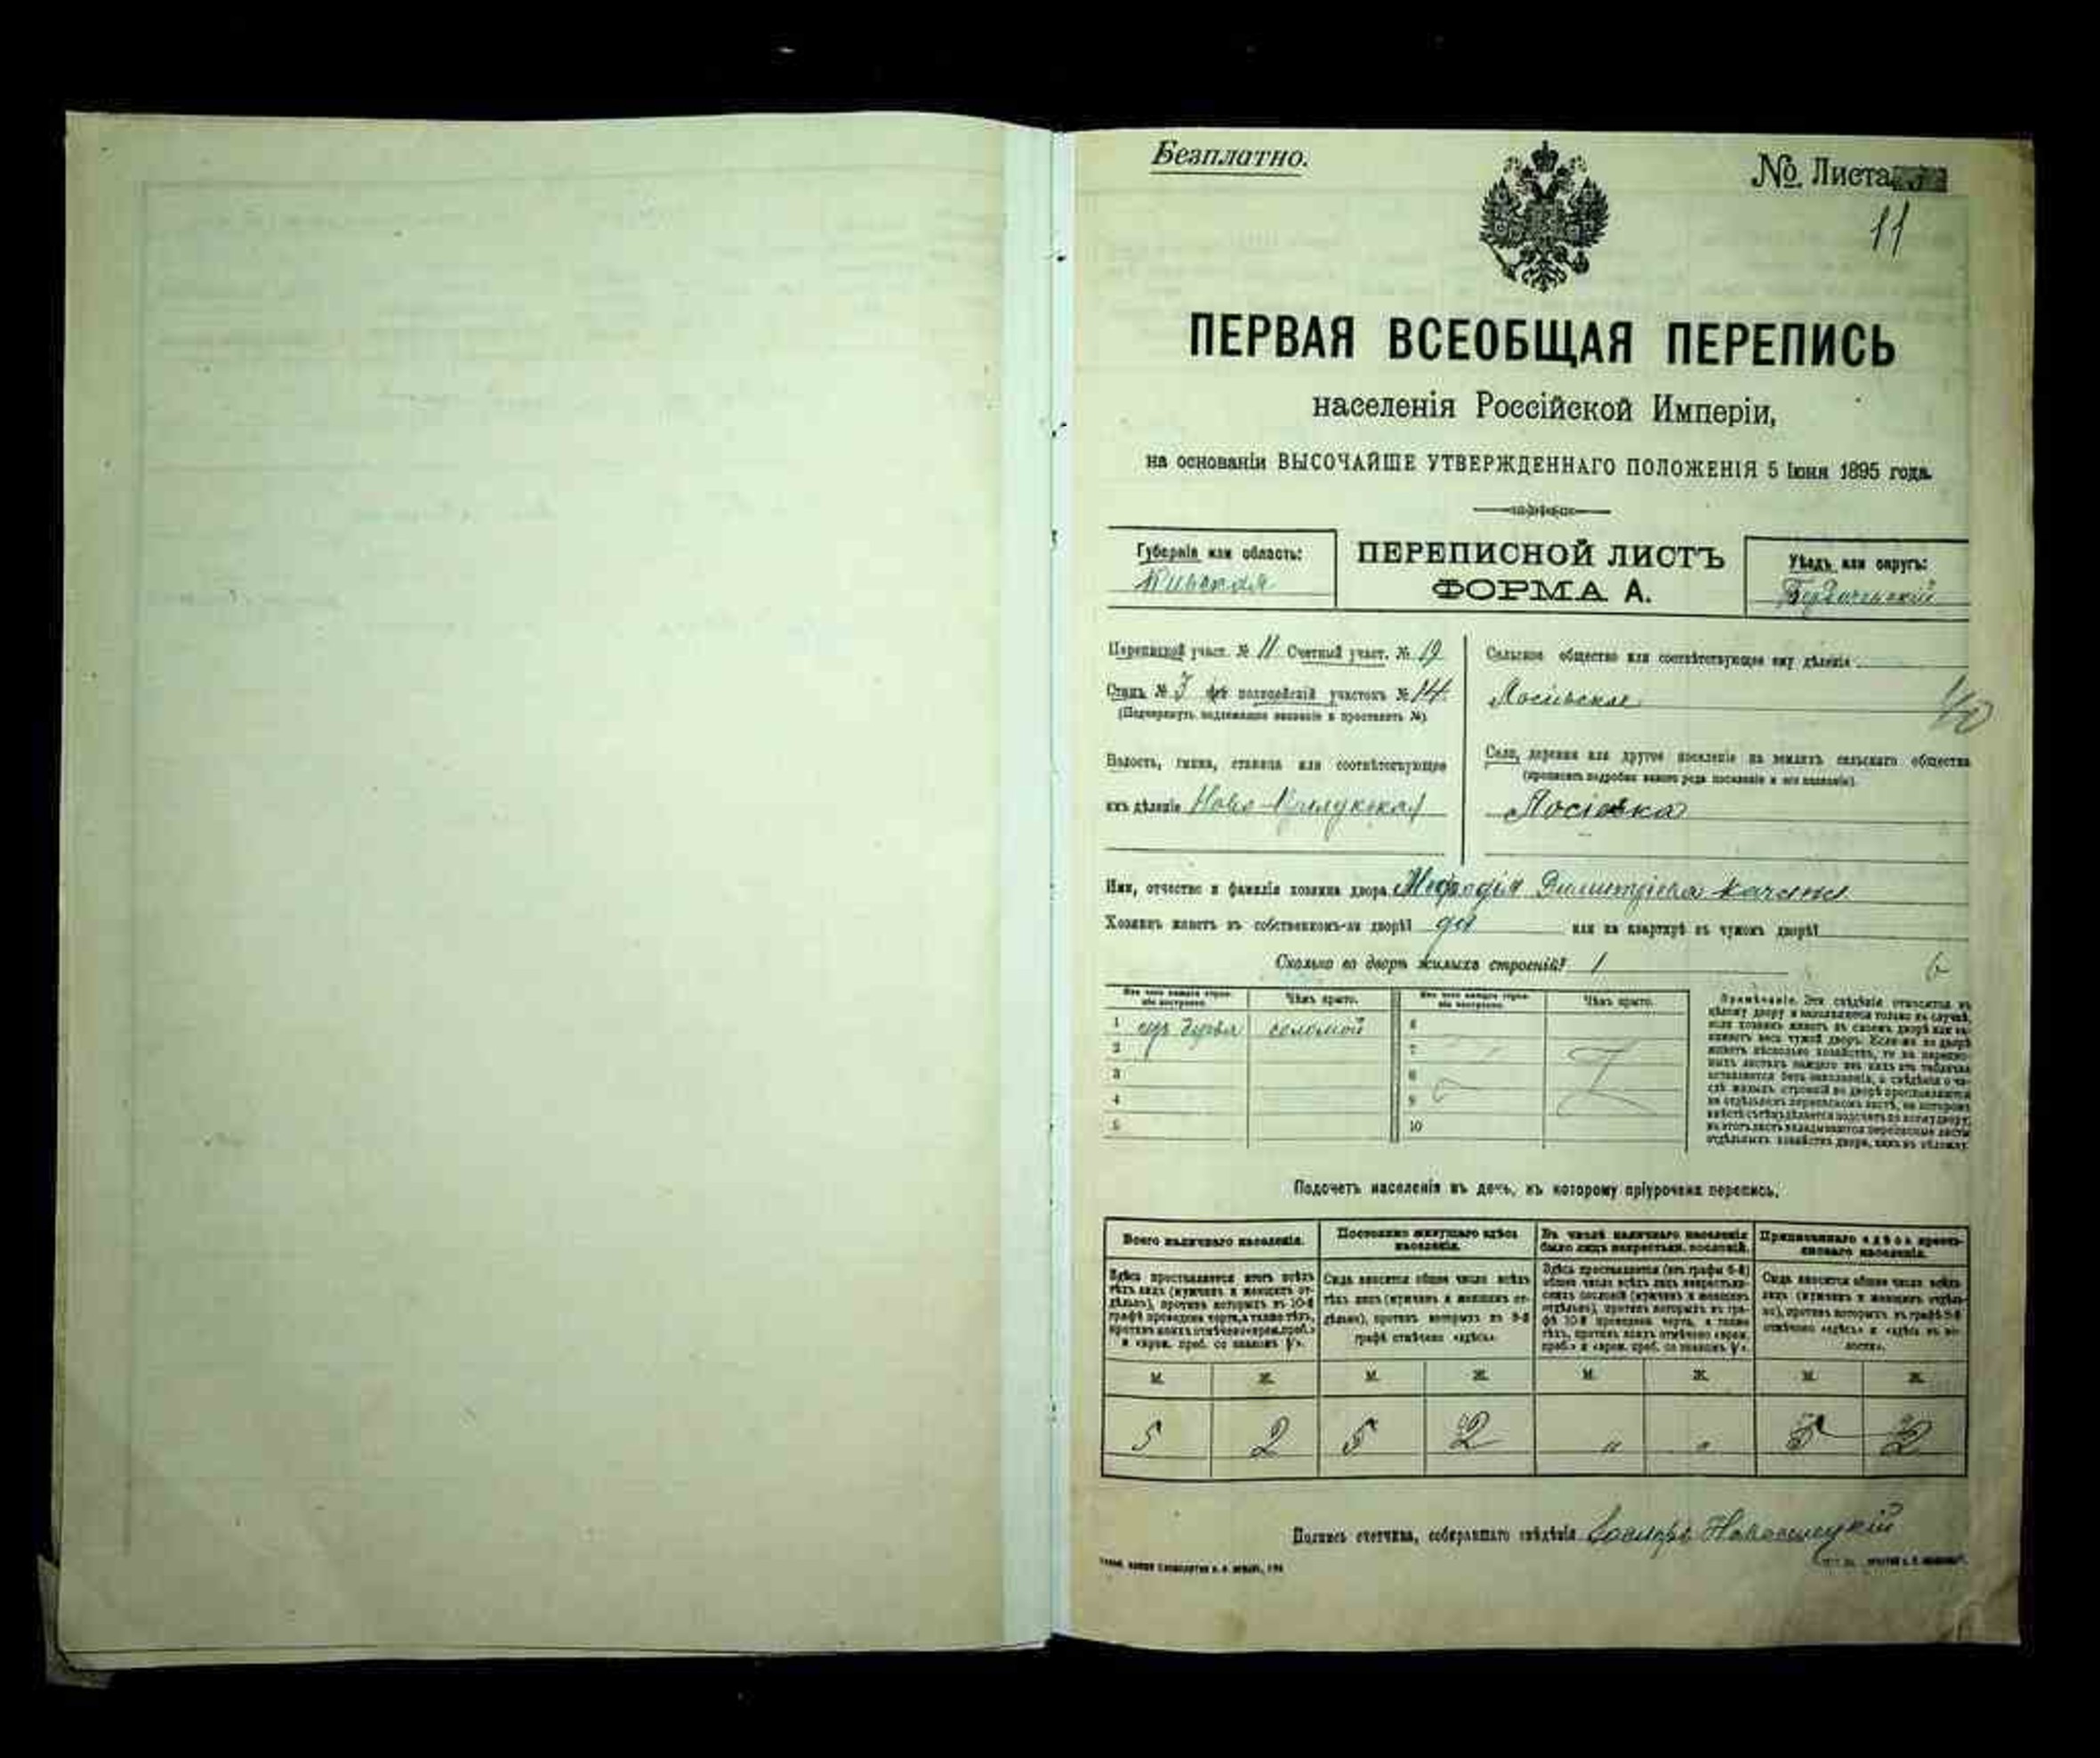 Безплатно.
№ Листа
11
ПЕРВАЯ ВСЕОБЩАЯ ПЕРЕПИСЬ
населенія Россійской Имперіи,
на основаніи ВЫСОЧАЙШЕ УТВЕРЖДЕННАГО ПОЛОЖЕНІЯ 5 Іюня 1895 года.
Губернія или область:
Кіевская
ПЕРЕПИСНОЙ ЛИСТЪ
ФОРМА А.
Уѣздъ или округъ:
Бердичевскій
Переписной участ. № 11 Счетный участ. № 19
Станъ № 3 или полицейскій участокъ № 14
(Подчеркнуть надлежащее названіе и проставить №).
Волость, гмина, станица или соотвѣтствующее
имъ дѣленіе Ново-Прилукская
Сельское общество или соотвѣтствующее ему дѣленіе
Лосіевское
Село, деревня или другое поселеніе на земляхъ сельскаго общества
(прописать подробно какого рода поселеніе и его названіе).
Лосіевка
Имя, отчество и фамилія хозяина двора Мефодія Димитріева
Хозяинъ живетъ въ собственномъ-ли дворѣ? да или на квартирѣ въ чужомъ дворѣ?
Сколько во дворѣ жилыхъ строеній? 1
6
Изъ чего каждое строеніе построено. Чѣмъ крыто. Изъ чего каждое строеніе построено. Чѣмъ крыто.
1 изъ дерева соломой 6
2 7
3 8
4 9
5 10
Примѣчаніе. Эти свѣдѣнія относятся къ
цѣлому двору и заполняются только въ случаѣ,
если хозяинъ живетъ въ своемъ дворѣ или за-
нимаетъ весь чужой дворъ. Если-же во дворѣ
живетъ нѣсколько хозяйствъ, то на перепис-
ныхъ листахъ каждаго изъ нихъ эта табличка
оставляется безъ заполненія, а свѣдѣнія о чи-
слѣ жилыхъ строеній во дворѣ проставляются
на отдѣльномъ переписномъ листѣ, на которомъ
отдѣльныхъ хозяйствъ двора,
Подсчетъ населенія въ день, къ которому пріурочена перепись.
Всего наличнаго населенія.
Постоянно живущаго здѣсь населенія.
Въ числѣ наличнаго населенія было лицъ некрестьян. сословій.
Приписаннаго здѣсь крестьянскаго населенія.
Здѣсь проставляется итогъ всѣхъ
тѣхъ лицъ (мужчинъ и женщинъ от-
дѣльно), противъ которыхъ въ 10-й
графѣ проведена черта, а также тѣхъ,
противъ коихъ отмѣчено «врем. преб.»
и «врем. преб. со знакомъ V».
Сюда вносится общее число всѣхъ
тѣхъ лицъ (мужчинъ и женщинъ от-
дѣльно), противъ которыхъ въ 9-й
графѣ отмѣчено «здѣсь».
Здѣсь проставляется (изъ графы 6-й)
общее число всѣхъ лицъ некрестьян-
скихъ сословій (мужчинъ и женщинъ
отдѣльно), противъ которыхъ въ гра-
фѣ 10-й проведена черта, а также
тѣхъ, противъ коихъ отмѣчено «врем.
преб.» и «врем. преб. со знакомъ V».
Сюда вносится общее число всѣхъ
лицъ (мужчинъ и женщинъ отдѣль-
но), противъ которыхъ въ графѣ 8-й
отмѣчено «здѣсь» и «здѣсь въ во-
лости».
М. Ж. М. Ж. М. Ж. М. Ж.
5 2 5 2 " " 5 2
Подпись счетчика, собиравшаго свѣдѣнія